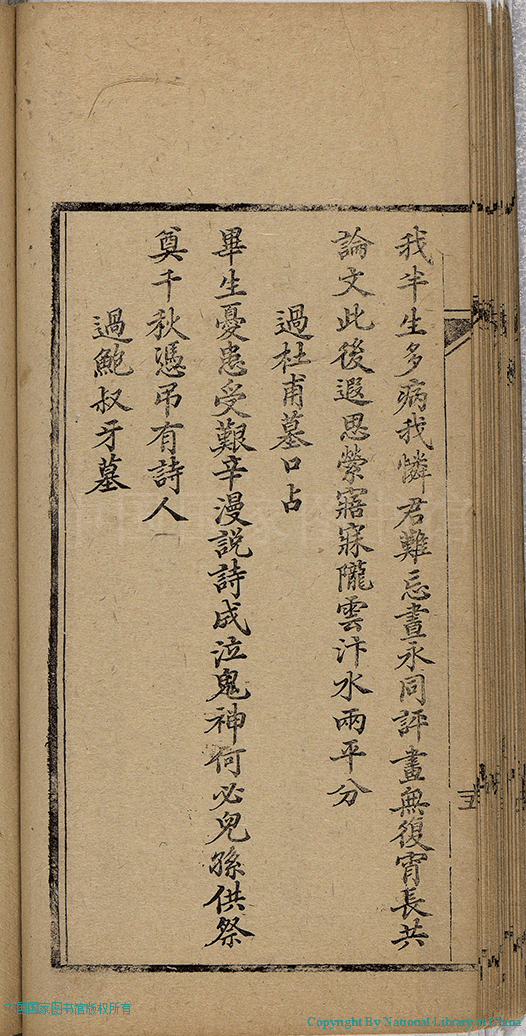 我半生多病我憐君難忘晝永同評畫無復宵長共
論文此後遐思縈寤寐隴雲汴水兩平分
過杜甫墓口占
畢生憂患受艱辛漫說詩成泣鬼神何必兒孫供祭
奠千秋憑吊有詩人
過鮑叔牙墓
五
中国国家图书馆版权所有
Copyright By National Library of China